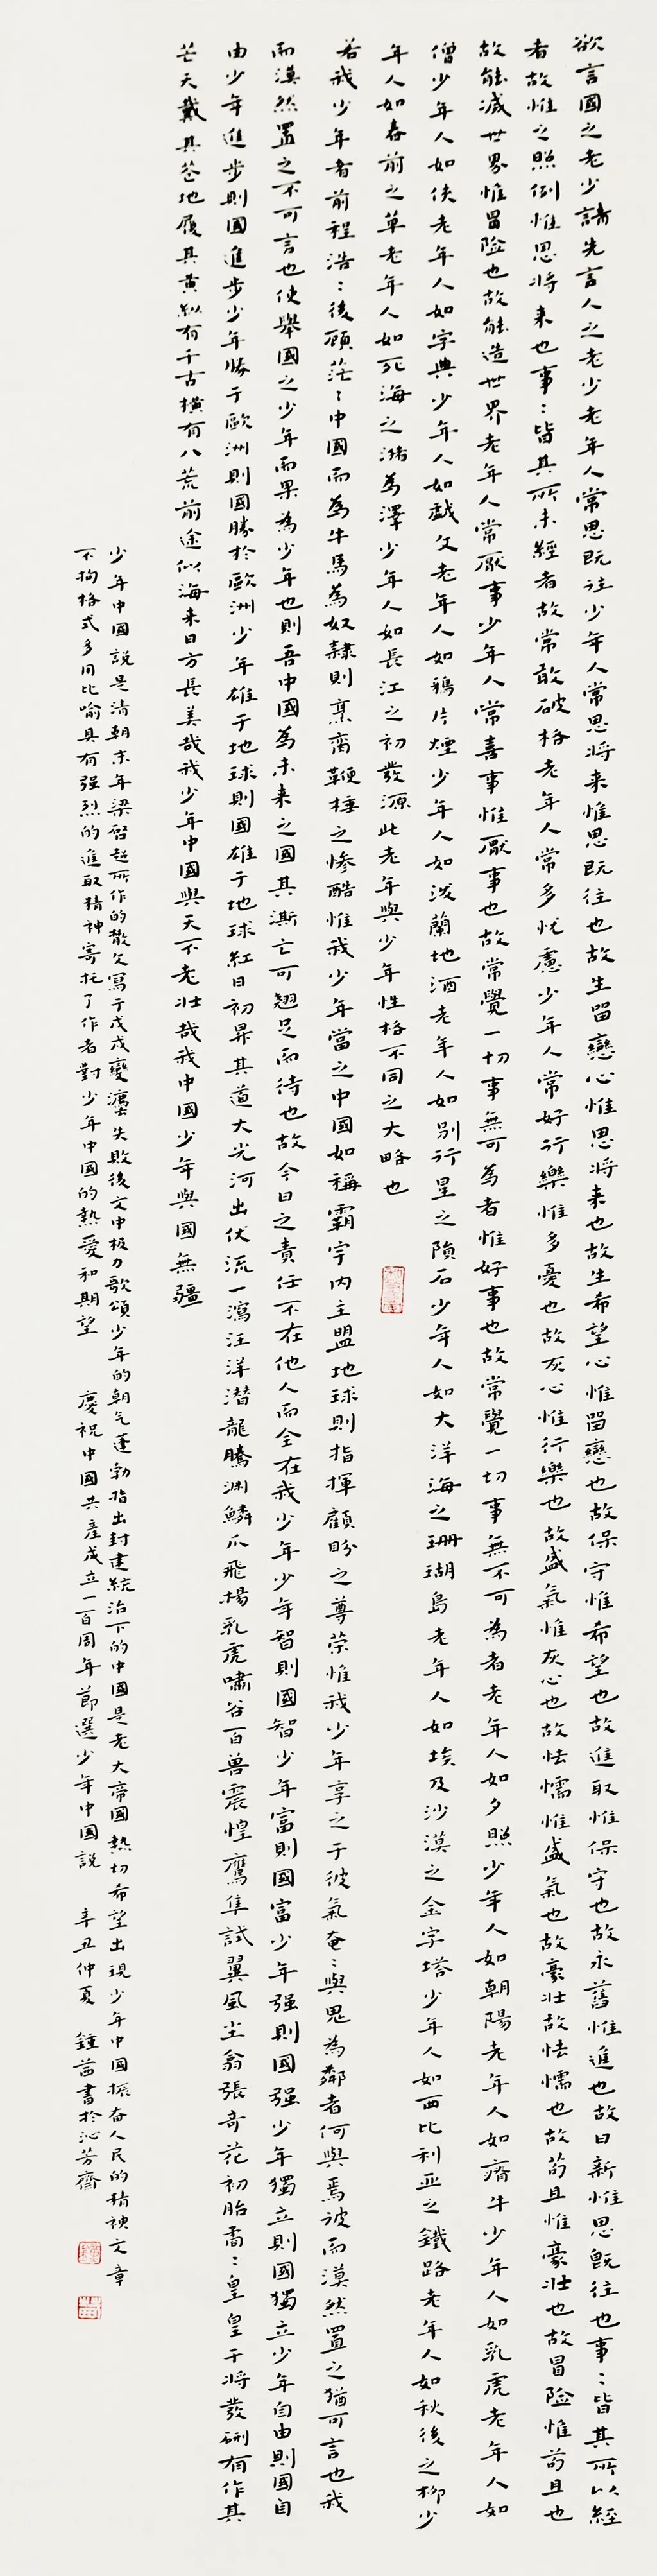 欲言國之老少請先言人之老少老年人常思既往少年人常思将来惟思既往也故生留戀心惟思将来也故生希望心惟留戀也故保守惟希望也故進取惟保守也故永舊惟進也故日新惟思既往也事：皆其所以經
者故惟之照例惟思将来也事：皆其所未經者故常敢破格老年人常多忧慮少年人常好行樂惟多憂也故灰心惟行樂也故盛氣惟灰心也故怯懦惟盛氣也故豪壮故怯懦也故苟且惟豪壮也故冒险惟苟且也
故能滅世界惟冒险也故能造世界老年人常厭事少年人常喜事惟厭事也故常覺一切事無可為者惟好事也故常覺一切事無不可為者老年人如夕照少年人如朝陽老年人如瘠牛少年人如乳虎老年人如
僧少年人如侠老年人如字典少年人如戯文老年人如鴉片煙少年人如泼蘭地酒老年人如别行星之隕石少年人如大洋海之珊瑚島老年人如埃及沙漠之金字塔少年人如西比利亚之鐵路老年人如秋後之柳少
年人如春前之草老年人如死海之潴為澤少年人如長江之初發源此老年與少年性格不同之大略也
若我少年者前程浩：後顾茫：中國而為牛馬為奴隸則烹脔鞭棰之惨酷惟我少年當之中國如稱霸宇内主盟地球則指揮顧盼之尊荣惟我少年享之于彼氣奄：與鬼為鄰者何與焉彼而漠然置之猶可言也我
而漠然置之不可言也使舉國之少年而果為少年也則吾中國為未来之國其澌亡可翘足而待也故今日之責任不在他人而全在我少年少年智則國智少年富則國富少年强則國强少年獨立則國獨立少年自由則國自
由少年進步則國進步少年勝于歐洲則國勝於歐洲少年雄于地球則國雄于地球紅日初昇其道大光河出伏流一瀉汪洋潜龍騰渊鱗爪飛楊乳虎嘯谷百兽震惶鹰隼試翼風尘翕張奇花初胎矞：皇皇干将發硎有作其
芒天戴其苍地履其黄縱有千古横有八荒前途似海来日方長美哉我少年中國與天不老壮哉我中國少年與國無疆
少年中國說是清朝末年梁啓超所作的散文寫于戊戌變瀍失敗後文中极力歌頌少年的朝气蓬勃指出封建統治下的中國是老大帝國熱切希望出現少年中國振奋人民的精神文章
不拘格式多用比喻具有强烈的進取精神寄托了作者對少年中國的熱愛和期望 慶祝中國共產成立一百周年節選少年中國説 辛丑仲夏 鍾茜書於沁芳齋